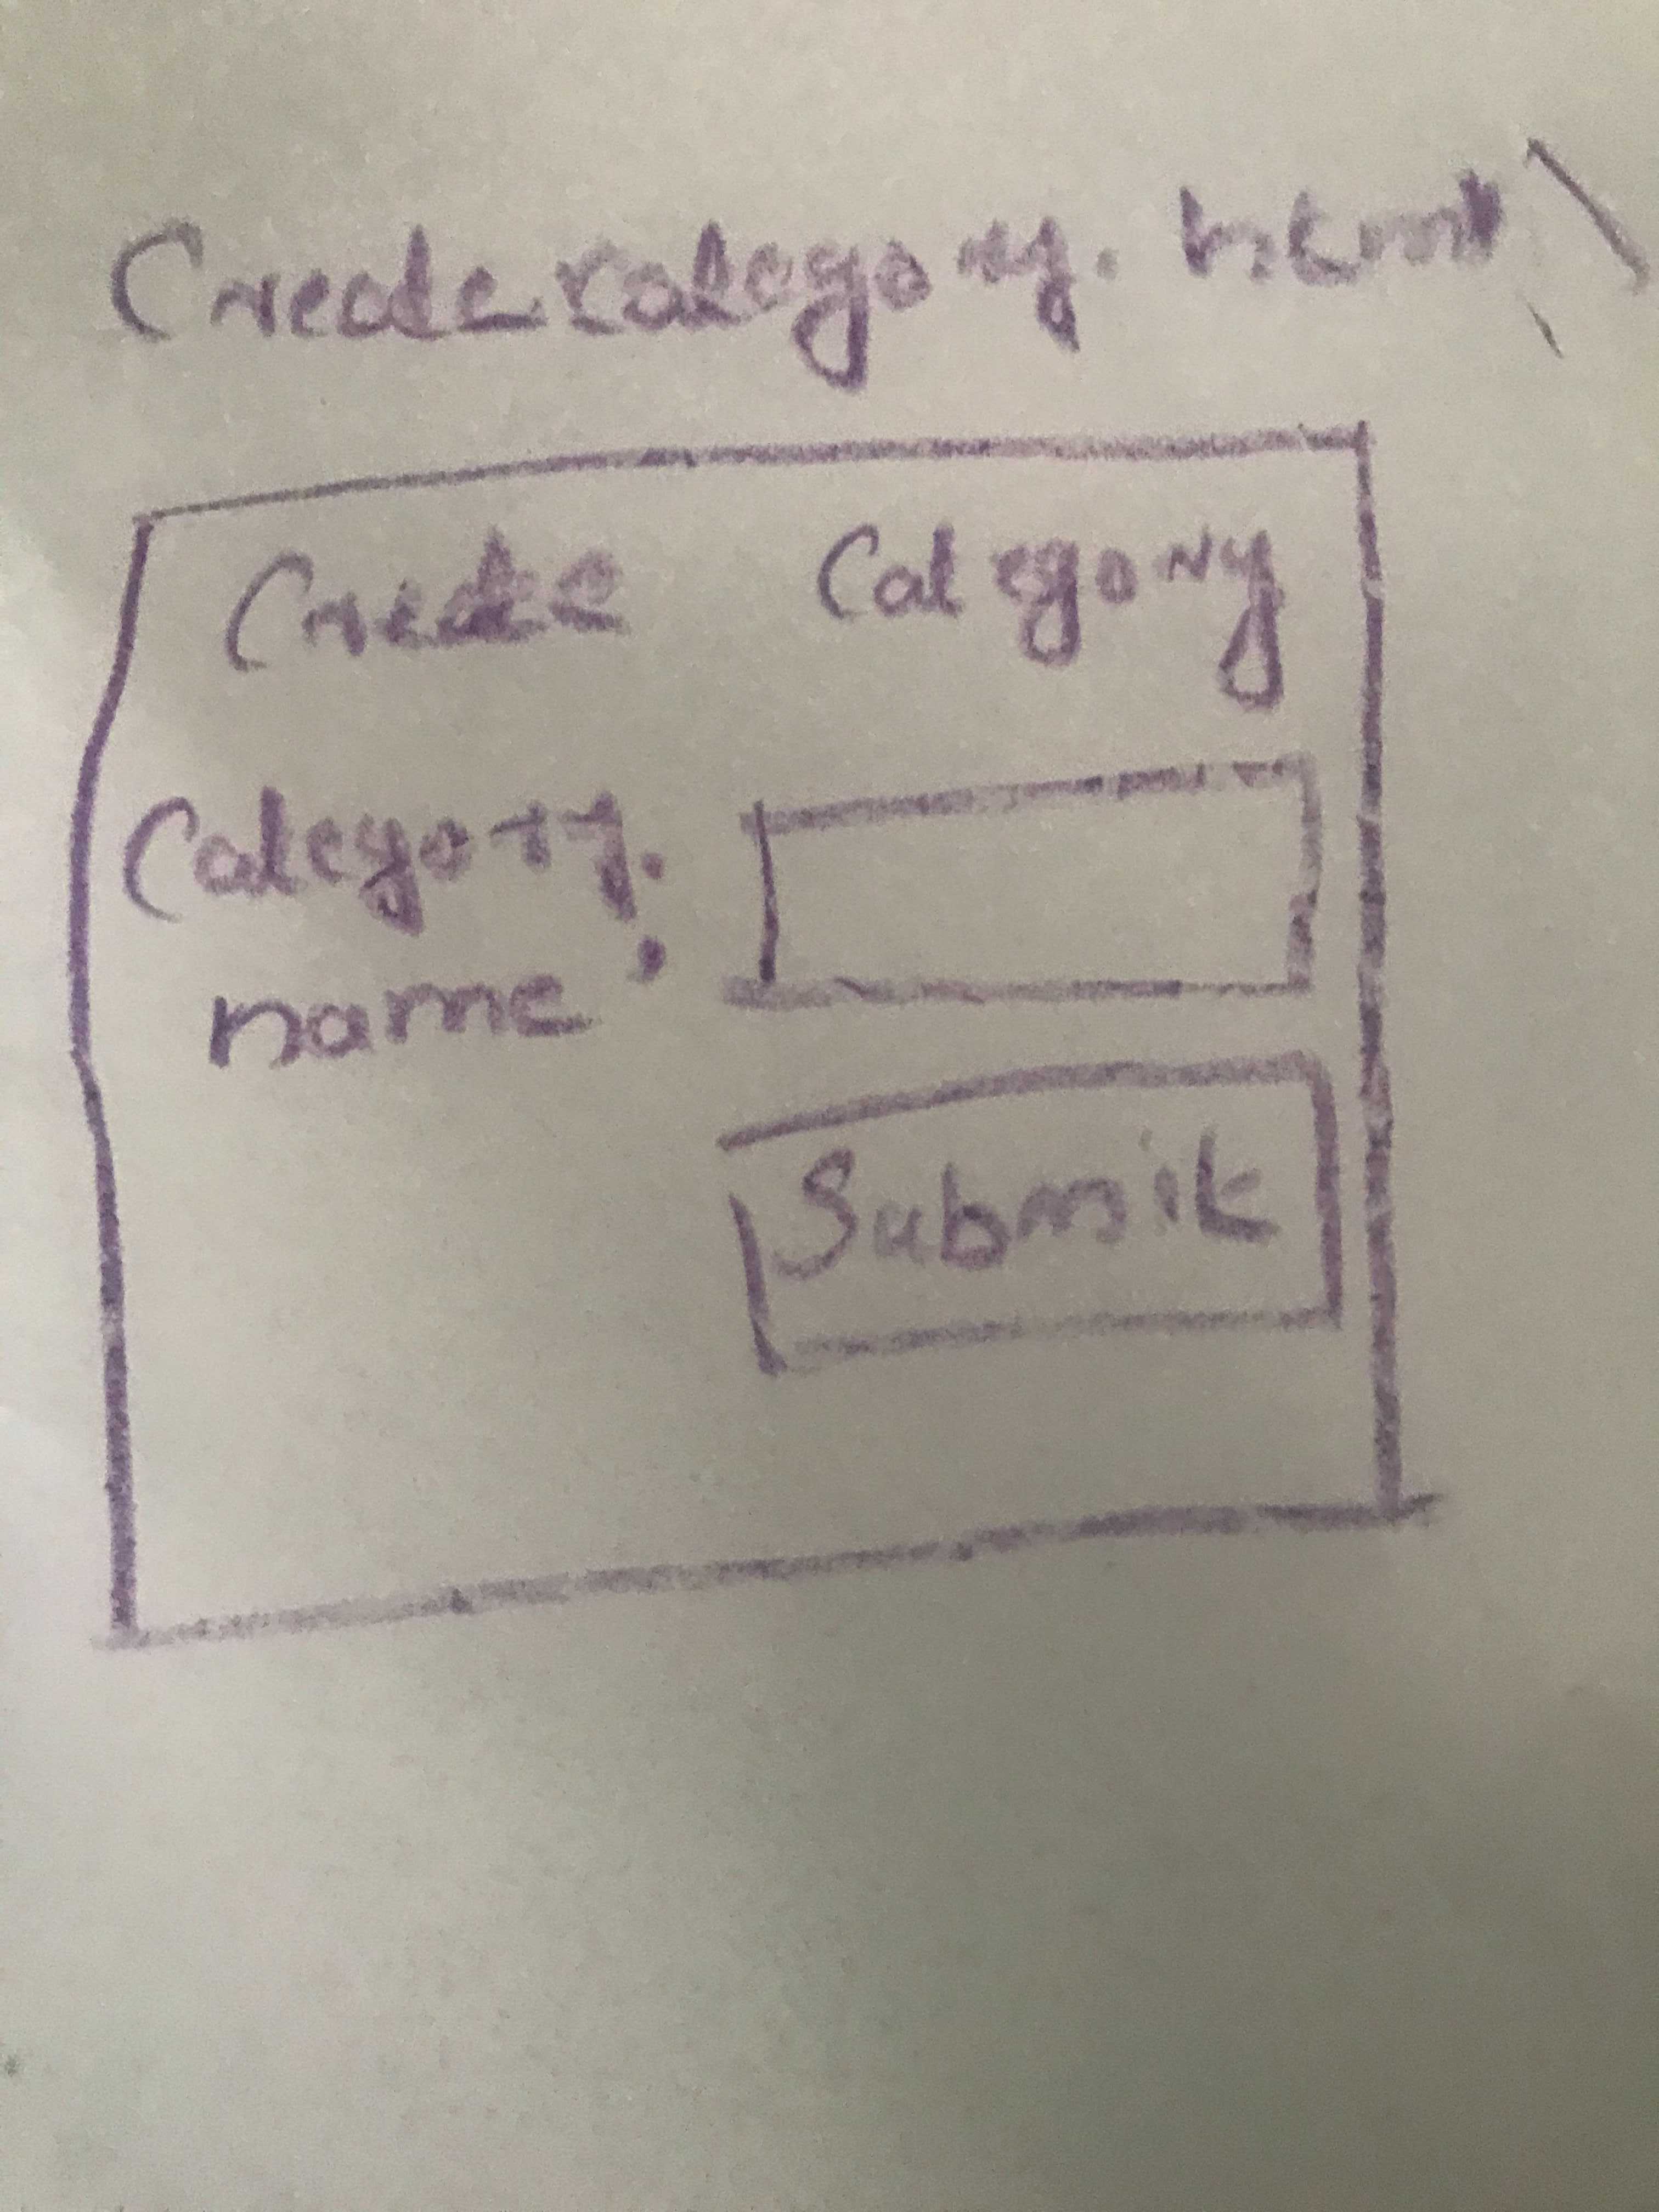 Createcategory.html
Create Category
Category
name :
Submit